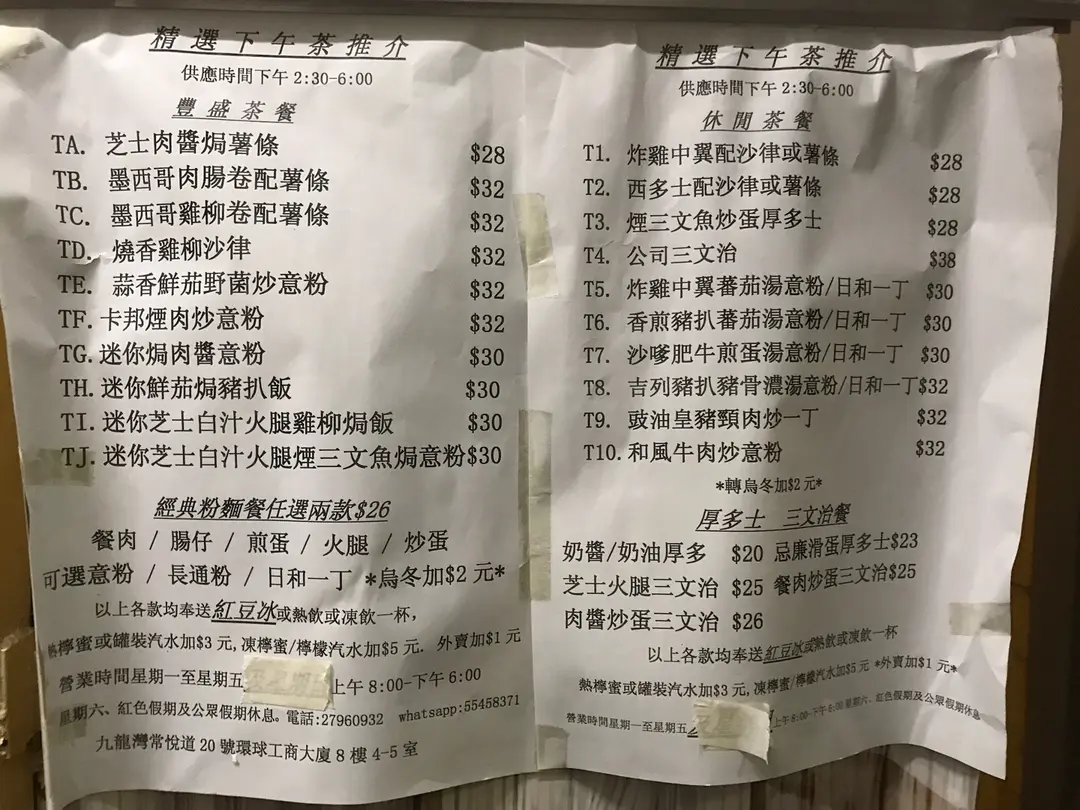 精選下午茶推介
供應時間下午 2:30-6:00
豐盛茶餐
TA. 芝士肉醬焗薯條 $28
TB. 墨西哥肉腸卷配薯條 $32
TC. 墨西哥雞柳卷配薯條 $32
TD. 燒香雞柳沙律 $32
TE. 蒜香鮮茄野菌炒意粉 $32
TF. 卡邦煙肉炒意粉 $32
TG. 迷你焗肉醬意粉 $30
TH. 迷你鮮茄焗豬扒飯 $30
TI. 迷你芝士白汁火腿雞柳焗飯 $30
TJ. 迷你芝士白汁火腿煙三文魚焗意粉$30
經典粉麵餐任選兩款$26
餐肉 / 腸仔 / 煎蛋 / 火腿 / 炒蛋
可選意粉 / 長通粉 / 日和一丁 *烏冬加$2 元*
以上各款均奉送紅豆冰或熱飲或凍飲一杯,
熱檸蜜或罐裝汽水加$3 元,凍檸蜜/檸檬汽水加$5 元. 外賣加$1 元
營業時間星期一至星期五 上午 8:00-下午 6:00
星期六、紅色假期及公眾假期休息。電話:27960932 whatsapp:55458371
九龍灣常悅道 20 號環球工商大廈 8 樓 4-5 室
精選下午茶推介
供應時間下午 2:30-6:00
休閒茶餐
T1. 炸雞中翼配沙律或薯條 $28
T2. 西多士配沙律或薯條 $28
T3. 煙三文魚炒蛋厚多士 $28
T4. 公司三文治 $38
T5. 炸雞中翼蕃茄湯意粉/日和一丁 $30
T6. 香煎豬扒蕃茄湯意粉/日和一丁 $30
T7. 沙嗲肥牛煎蛋湯意粉/日和一丁 $30
T8. 吉列豬扒豬骨濃湯意粉/日和一丁$32
T9. 豉油皇豬頸肉炒一丁 $32
T10. 和風牛肉炒意粉 $32
*轉烏冬加$2 元*
厚多士 三文治餐
奶醬/奶油厚多 $20 忌廉滑蛋厚多士$23
芝士火腿三文治 $25 餐肉炒蛋三文治$25
肉醬炒蛋三文治 $26
以上各款均奉送紅豆冰或熱飲或凍飲一杯
熱檸蜜或罐裝汽水加$3 元,凍檸蜜/檸檬汽水加$5 元 *外賣加$1 元*
營業時間星期一至星期五 上午 8:00-下午 6:00 星期六、紅色假期及公眾假期休息